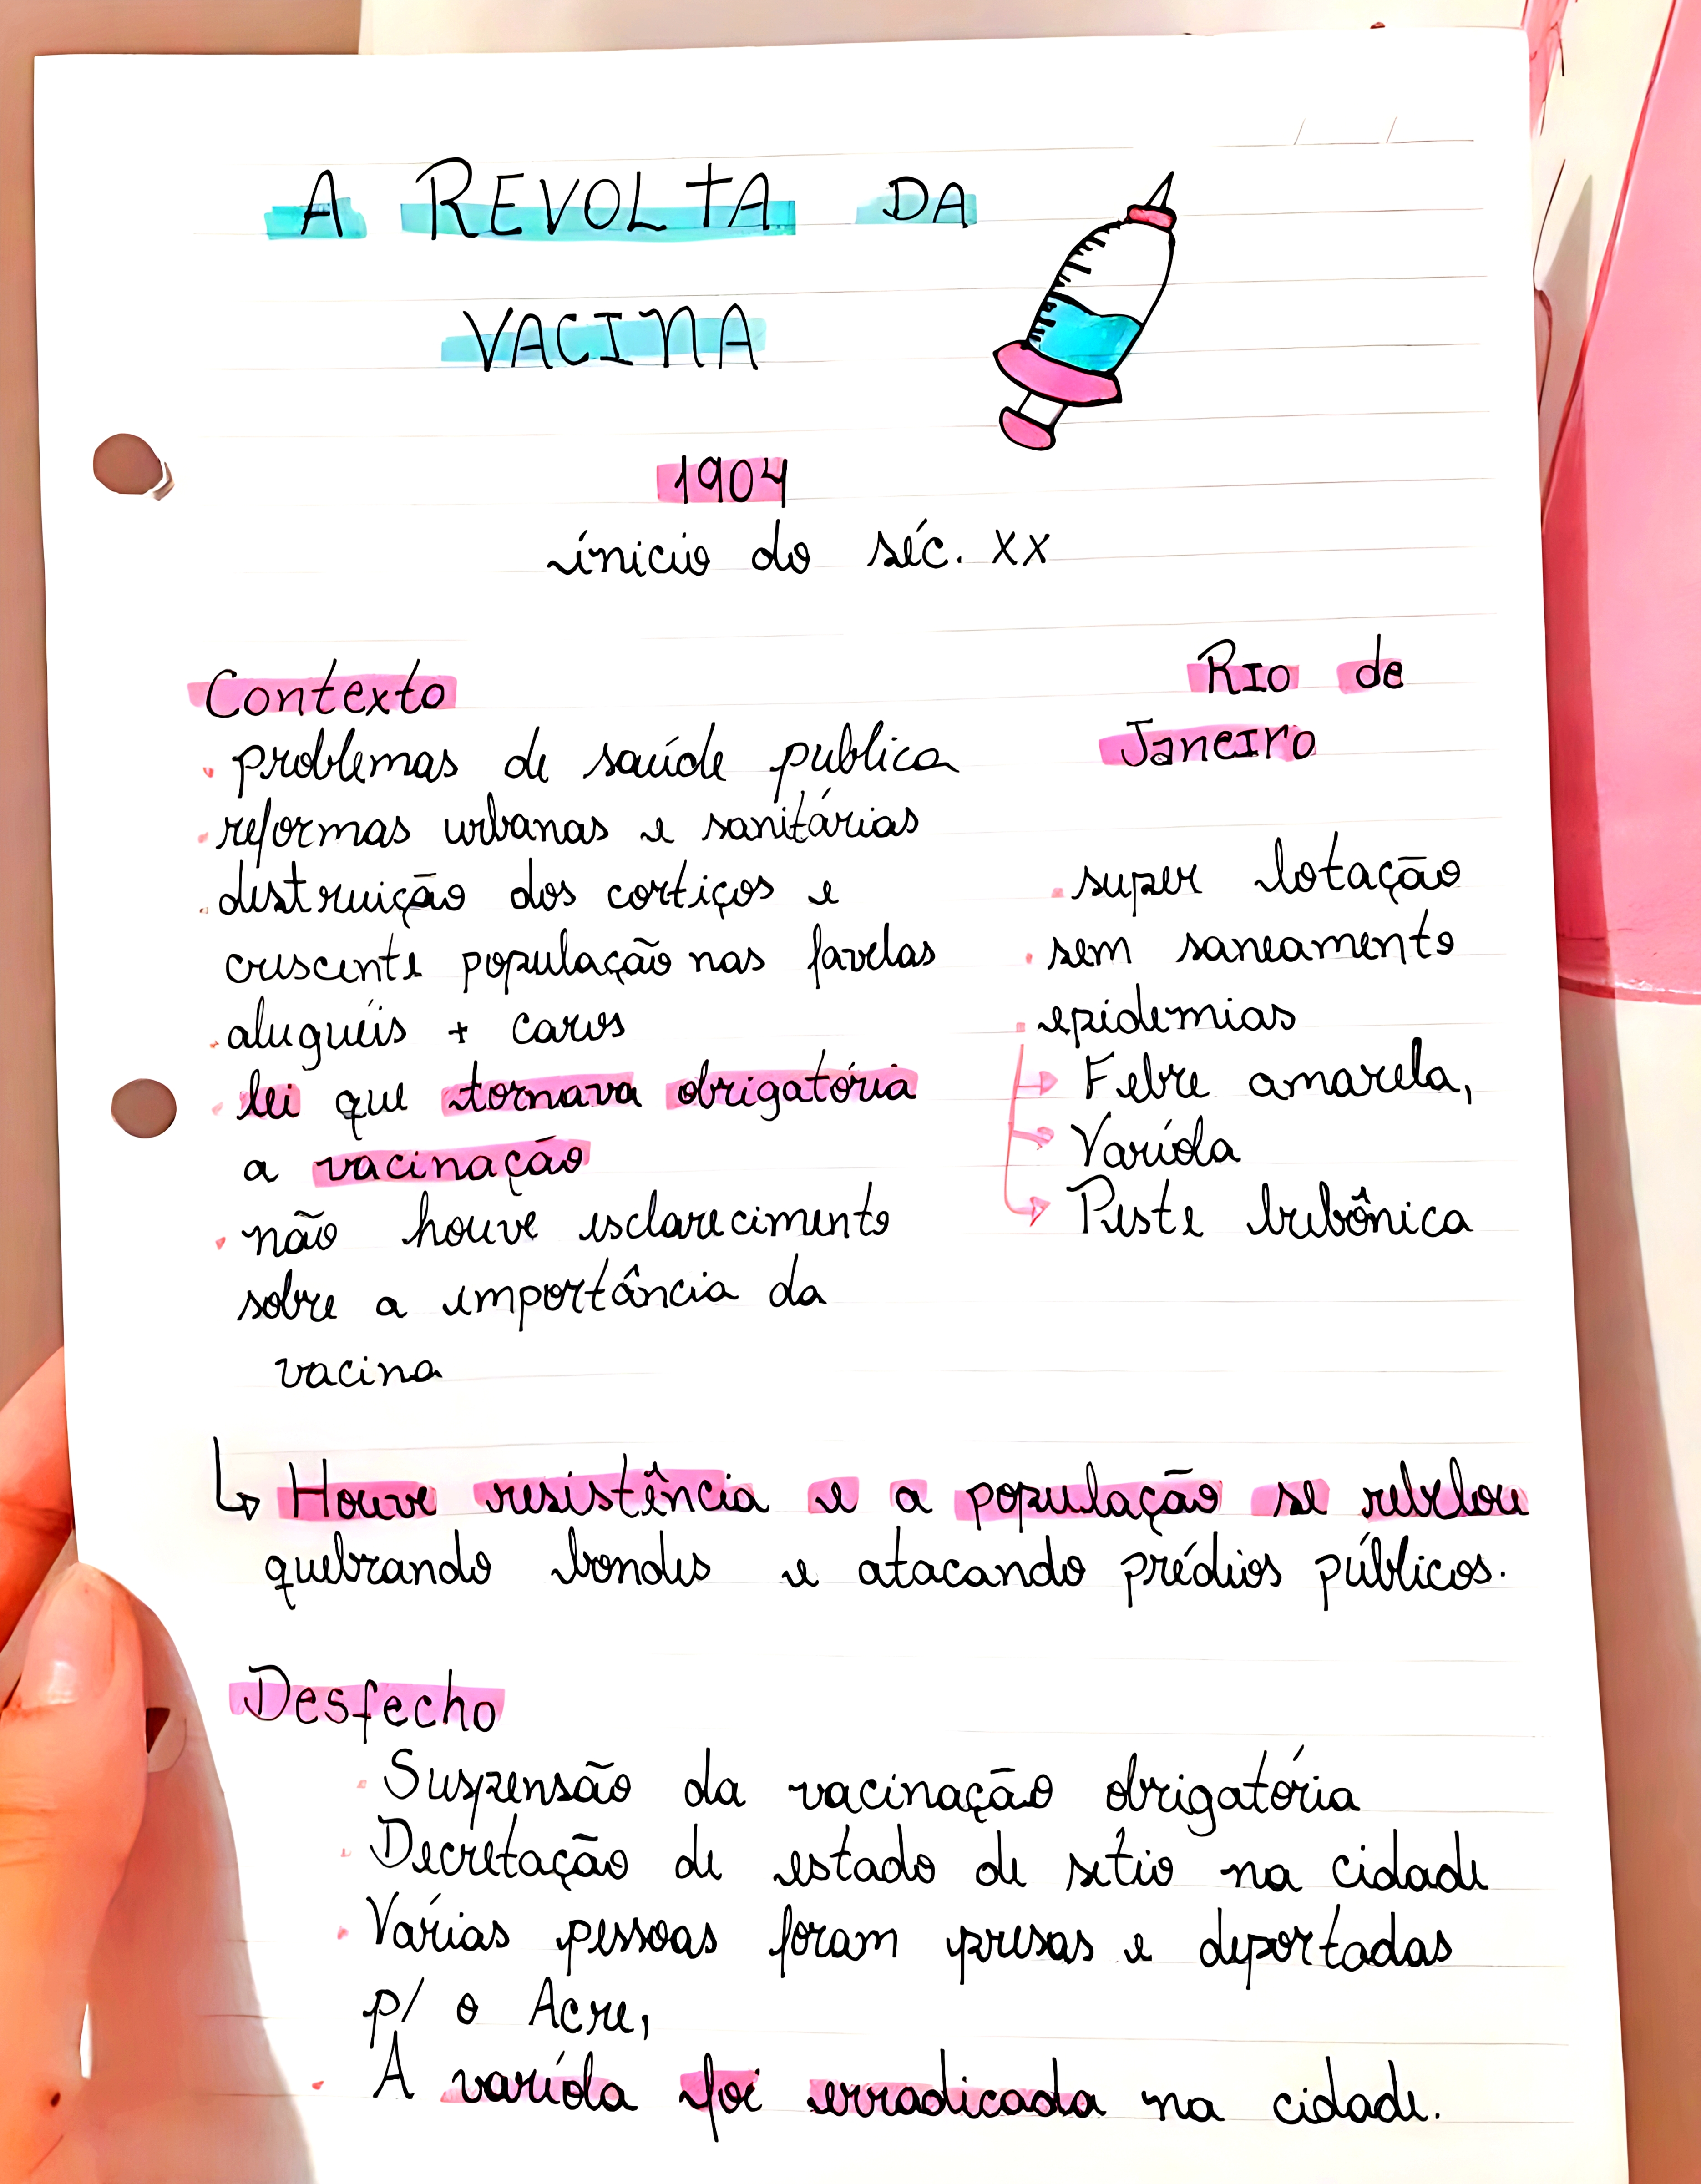 A REVOLTA DA
VACINA
1904
ínicio do séc. XX
Contexto
. problemas de saúde publica
. reformas urbanas e sanitárias
. destruição dos cortiços e
crescente população nas favelas
. aluguéis + caros
. lei que tornava obrigatória
a vacinação
. não houve esclarecimento
sobre a importância da
vacina
Rio de
Janeiro
. super lotação
. sem saneamento
. epidemias
→ Febre amarela,
→ Varíola
→ Peste bubônica
↳ Houve resistência e a população se rebelou
quebrando bondes e atacando prédios públicos.
Desfecho
. Suspensão da vacinação obrigatória
. Decretação de estado de sítio na cidade
. Várias pessoas foram presas e deportadas
p/ o Acre,
. A varíola foi erradicada na cidade.